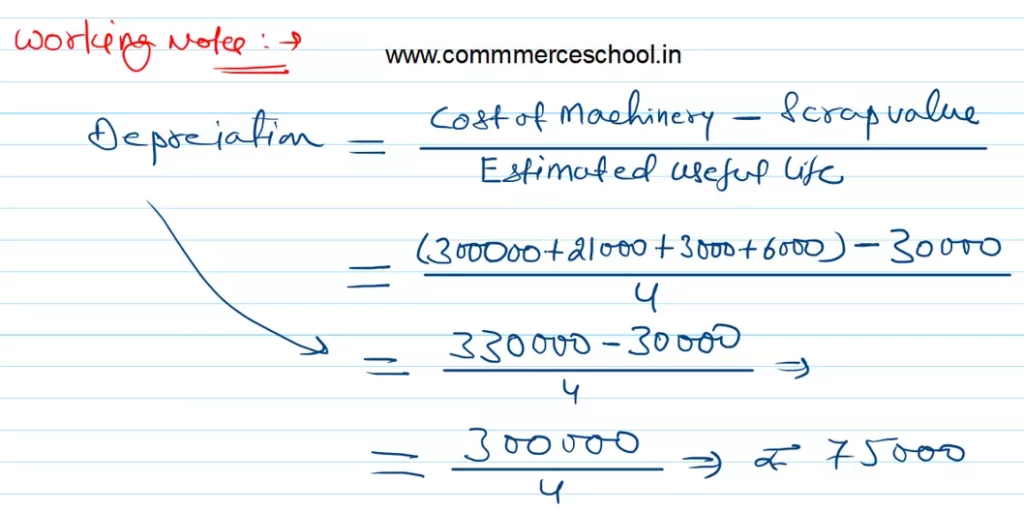 Working Notes :→
www.commmerceschool.in
Depreciation = Cost of Machinery − Scrap value / Estimated useful life
= (300000+21000+3000+6000) − 30000 / 4
= 330000 − 30000 / 4 ⇒
= 300000 / 4 ⇒ ₹ 75000